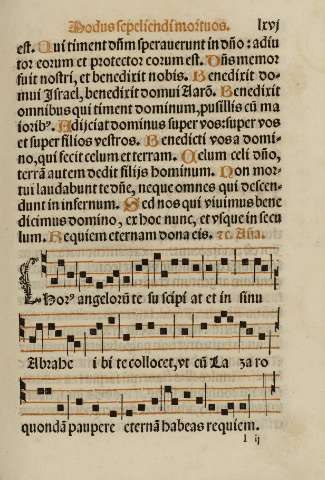 Modus sepeliendi mortuos. lxvj
est. Qui timent dñm sperauerunt in dño: adiu
tor eorum et protector eorum est. Dñs memor
fuit nostri, et benedixit nobis. Benedixit do-
mui Israel, benedixit domui Aarõ. Benedixit
omnibus qui timent dominum, pusillis cũ ma
iorib9. Adijciat dominus super vos: super vos
et super filios vestros. Benedicti vos a domi-
no, qui fecit celum et terram. Celum celi dño,
terrã autem dedit filijs hominum. Non mor-
tui laudabunt te dñe, neque omnes qui descen-
dunt in infernum. Sed nos qui viuimus bene
dicimus domino, ex hoc nunc, et vsque in secu
lum. Requiem eternam dona eis. ⁊c. Aña.
Chor9 angelorũ te su scipi at et in sinu
Abrahe i bi te collocet, vt cũ La za ro
quondã paupere eternã habeas requiem.
I ij